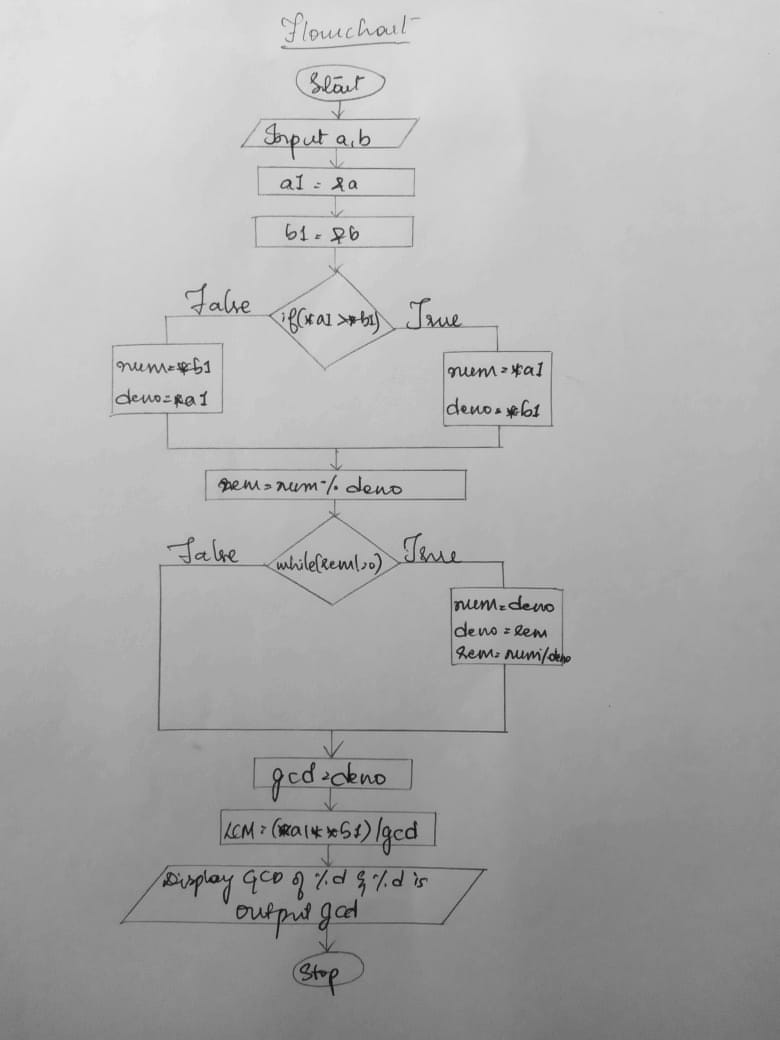 Flowchart
Start
Input a,b
a1 = &a
b1 = &b
if(*a1 > *b1)
False
True
num=*b1
deno=*a1
num=*a1
deno=*b1
rem=num % deno
while(rem!=0)
False
True
num=deno
deno=rem
rem=num%deno
gcd=deno
LCM=(*a1* *b1)/gcd
Display GCD of %d & %d is
output gcd
Stop